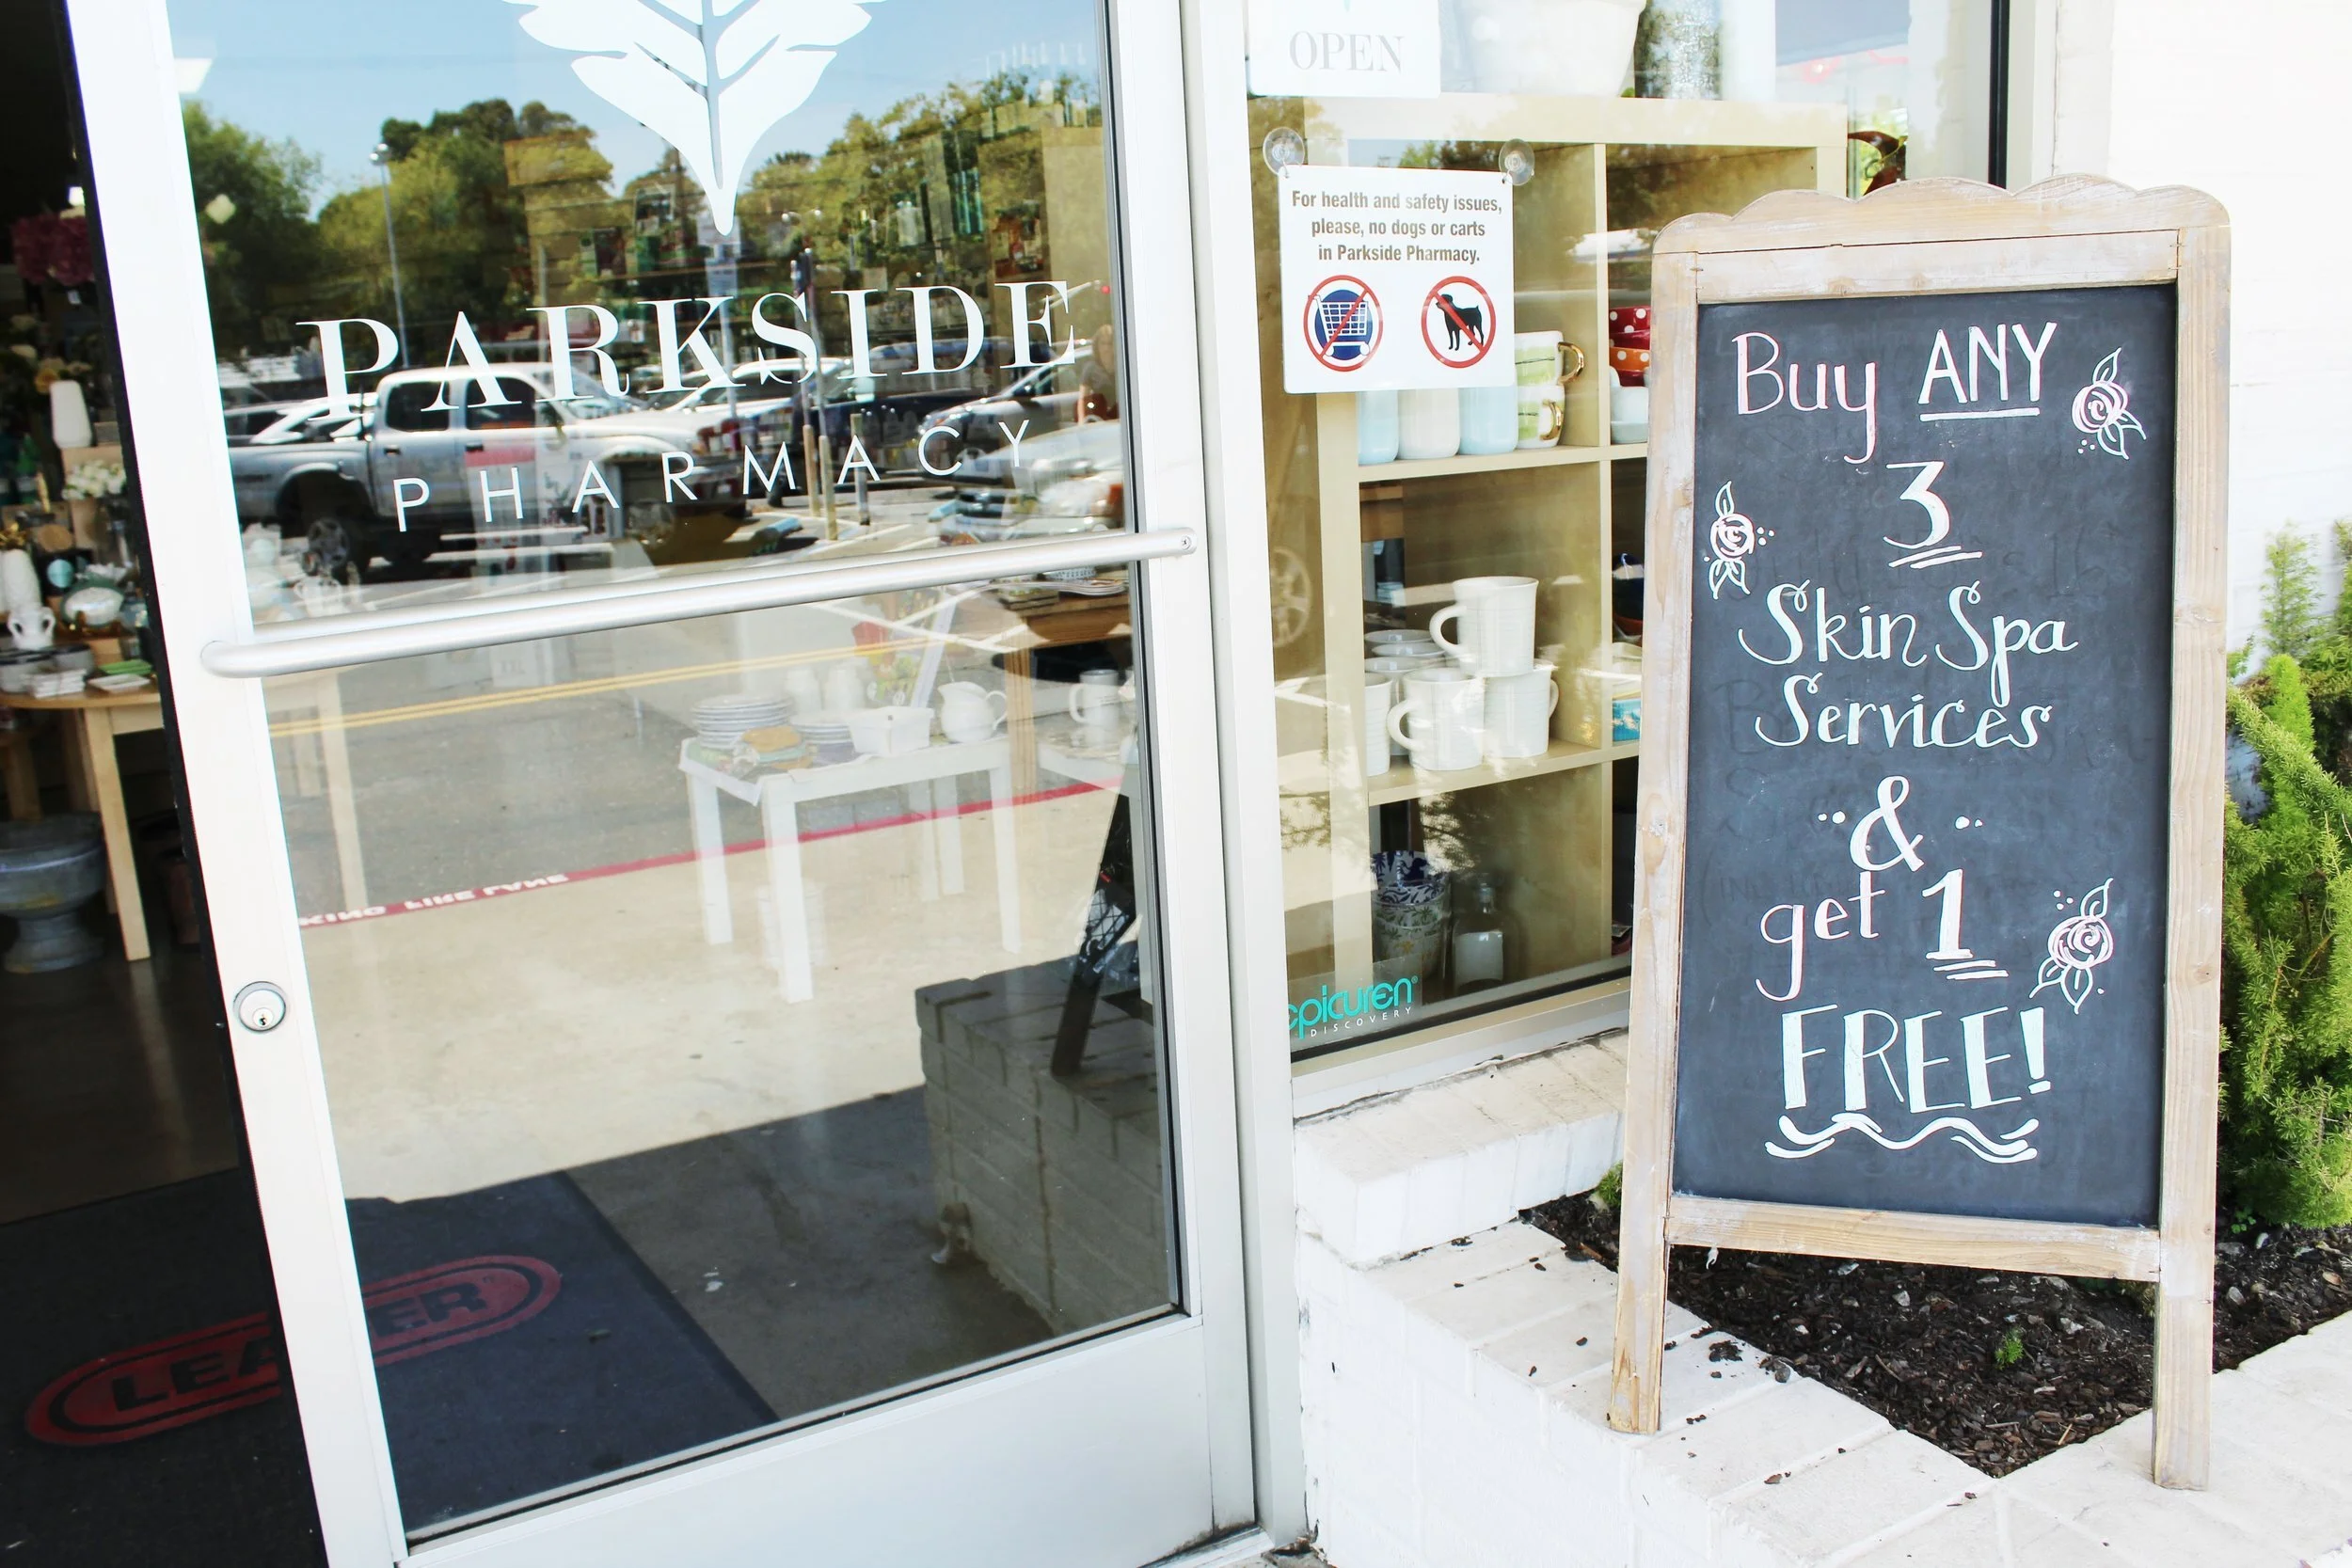 PARKSIDE
PHARMACY
OPEN
For health and safety issues,
please, no dogs or carts
in Parkside Pharmacy.
epicuren®
DISCOVERY
Buy ANY
3
Skin Spa
Services
&
get 1
FREE!
LEADER
FIRE LANE